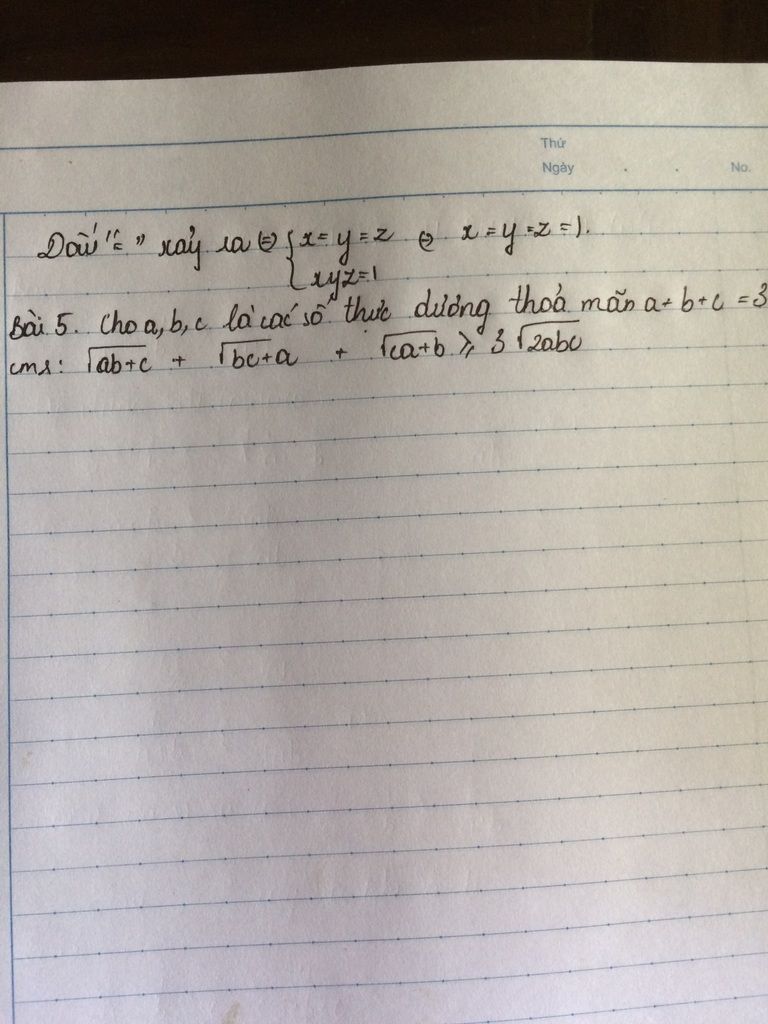 Thứ
Ngày . . No.
Dấu "=" xảy ra ⇔ { x=y=z ⇔ x=y=z=1.
xyz=1
Bài 5. Cho a, b, c là các số thực dương thoả mãn a+b+c=3
cmr: √(ab+c) + √(bc+a) + √(ca+b) ⩾ 3√(2abc)